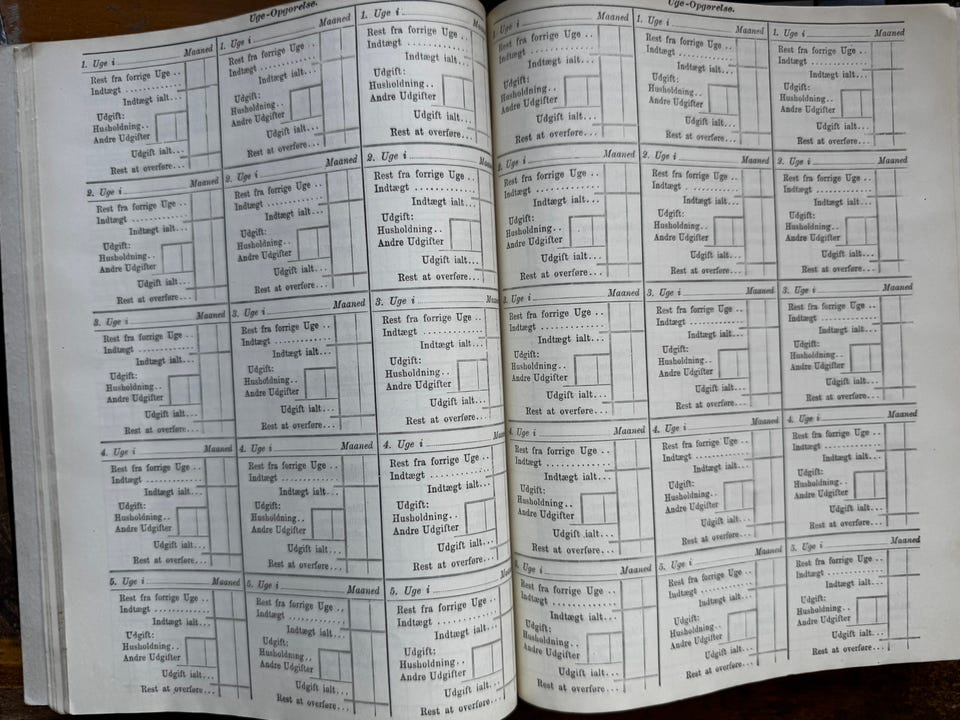 Uge-Opgørelse.
1. Uge i Maaned
Rest fra forrige Uge ..
Indtægt ............
Indtægt ialt...
Udgift:
Husholdning..
Andre Udgifter
Udgift ialt...
Rest at overføre...
2. Uge i Maaned
Rest fra forrige Uge ..
Indtægt ............
Indtægt ialt...
Udgift:
Husholdning..
Andre Udgifter
Udgift ialt...
Rest at overføre...
3. Uge i Maaned
Rest fra forrige Uge ..
Indtægt ............
Indtægt ialt...
Udgift:
Husholdning..
Andre Udgifter
Udgift ialt...
Rest at overføre...
4. Uge i Maaned
Rest fra forrige Uge ..
Indtægt ............
Indtægt ialt...
Udgift:
Husholdning..
Andre Udgifter
Udgift ialt...
Rest at overføre...
5. Uge i Maaned
Rest fra forrige Uge ..
Indtægt ............
Indtægt ialt...
Udgift:
Husholdning..
Andre Udgifter
Udgift ialt...
Rest at overføre...
1. Uge i Maaned
Rest fra forrige Uge ..
Indtægt ............
Indtægt ialt...
Udgift:
Husholdning..
Andre Udgifter
Udgift ialt...
Rest at overføre...
2. Uge i Maaned
Rest fra forrige Uge ..
Indtægt ............
Indtægt ialt...
Udgift:
Husholdning..
Andre Udgifter
Udgift ialt...
Rest at overføre...
3. Uge i Maaned
Rest fra forrige Uge ..
Indtægt ............
Indtægt ialt...
Udgift:
Husholdning..
Andre Udgifter
Udgift ialt...
Rest at overføre...
4. Uge i Maaned
Rest fra forrige Uge ..
Indtægt ............
Indtægt ialt...
Udgift:
Husholdning..
Andre Udgifter
Udgift ialt...
Rest at overføre...
5. Uge i Maaned
Rest fra forrige Uge ..
Indtægt ............
Indtægt ialt...
Udgift:
Husholdning..
Andre Udgifter
Udgift ialt...
Rest at overføre...
1. Uge i
Rest fra forrige Uge ..
Indtægt ............
Indtægt ialt...
Udgift:
Husholdning..
Andre Udgifter
Udgift ialt...
Rest at overføre...
2. Uge i
Rest fra forrige Uge ..
Indtægt ............
Indtægt ialt...
Udgift:
Husholdning..
Andre Udgifter
Udgift ialt...
Rest at overføre...
3. Uge i
Rest fra forrige Uge ..
Indtægt ............
Indtægt ialt...
Udgift:
Husholdning..
Andre Udgifter
Udgift ialt...
Rest at overføre...
4. Uge i
Rest fra forrige Uge ..
Indtægt ............
Indtægt ialt...
Udgift:
Husholdning..
Andre Udgifter
Udgift ialt...
Rest at overføre...
5. Uge i
Rest fra forrige Uge ..
Indtægt ............
Indtægt ialt...
Udgift:
Husholdning..
Andre Udgifter
Udgift ialt...
Rest at overføre...
Uge-Opgørelse.
1. Uge i Maaned
Rest fra forrige Uge ..
Indtægt ............
Indtægt ialt...
Udgift:
Husholdning..
Andre Udgifter
Udgift ialt...
Rest at overføre...
2. Uge i Maaned
Rest fra forrige Uge ..
Indtægt ............
Indtægt ialt...
Udgift:
Husholdning..
Andre Udgifter
Udgift ialt...
Rest at overføre...
3. Uge i Maaned
Rest fra forrige Uge ..
Indtægt ............
Indtægt ialt...
Udgift:
Husholdning..
Andre Udgifter
Udgift ialt...
Rest at overføre...
4. Uge i Maaned
Rest fra forrige Uge ..
Indtægt ............
Indtægt ialt...
Udgift:
Husholdning..
Andre Udgifter
Udgift ialt...
Rest at overføre...
5. Uge i Maaned
Rest fra forrige Uge ..
Indtægt ............
Indtægt ialt...
Udgift:
Husholdning..
Andre Udgifter
Udgift ialt...
Rest at overføre...
1. Uge i Maaned
Rest fra forrige Uge ..
Indtægt ............
Indtægt ialt...
Udgift:
Husholdning..
Andre Udgifter
Udgift ialt...
Rest at overføre...
2. Uge i Maaned
Rest fra forrige Uge ..
Indtægt ............
Indtægt ialt...
Udgift:
Husholdning..
Andre Udgifter
Udgift ialt...
Rest at overføre...
3. Uge i Maaned
Rest fra forrige Uge ..
Indtægt ............
Indtægt ialt...
Udgift:
Husholdning..
Andre Udgifter
Udgift ialt...
Rest at overføre...
4. Uge i Maaned
Rest fra forrige Uge ..
Indtægt ............
Indtægt ialt...
Udgift:
Husholdning..
Andre Udgifter
Udgift ialt...
Rest at overføre...
5. Uge i Maaned
Rest fra forrige Uge ..
Indtægt ............
Indtægt ialt...
Udgift:
Husholdning..
Andre Udgifter
Udgift ialt...
Rest at overføre...
1. Uge i Maaned
Rest fra forrige Uge ..
Indtægt ............
Indtægt ialt...
Udgift:
Husholdning..
Andre Udgifter
Udgift ialt...
Rest at overføre...
2. Uge i Maaned
Rest fra forrige Uge ..
Indtægt ............
Indtægt ialt...
Udgift:
Husholdning..
Andre Udgifter
Udgift ialt...
Rest at overføre...
3. Uge i Maaned
Rest fra forrige Uge ..
Indtægt ............
Indtægt ialt...
Udgift:
Husholdning..
Andre Udgifter
Udgift ialt...
Rest at overføre...
4. Uge i Maaned
Rest fra forrige Uge ..
Indtægt ............
Indtægt ialt...
Udgift:
Husholdning..
Andre Udgifter
Udgift ialt...
Rest at overføre...
5. Uge i Maaned
Rest fra forrige Uge ..
Indtægt ............
Indtægt ialt...
Udgift:
Husholdning..
Andre Udgifter
Udgift ialt...
Rest at overføre...